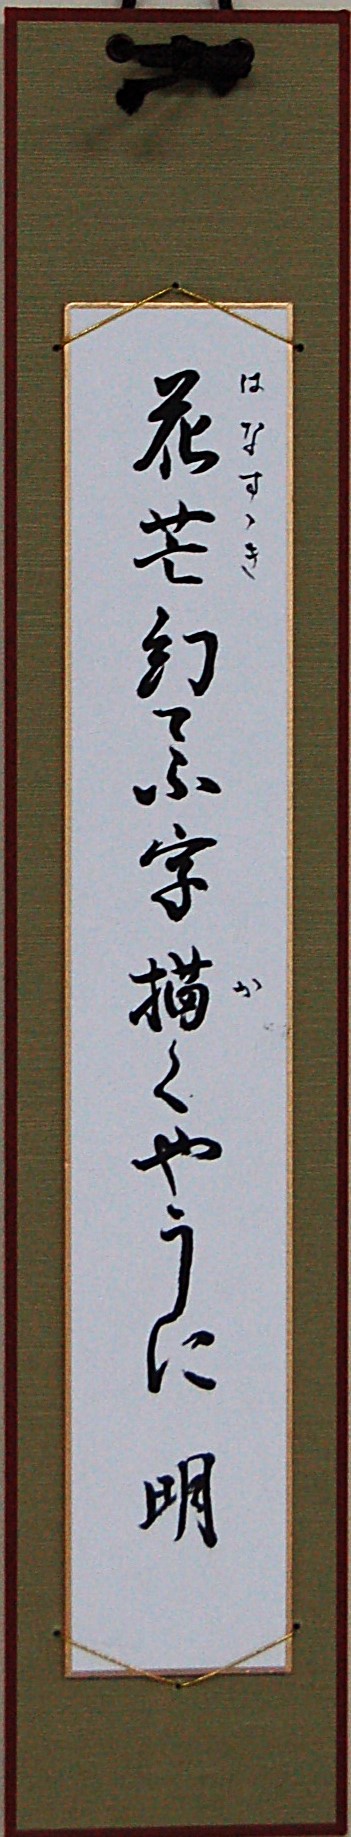 花芒幻てふ字描くやうに 明
はなすゝき
か